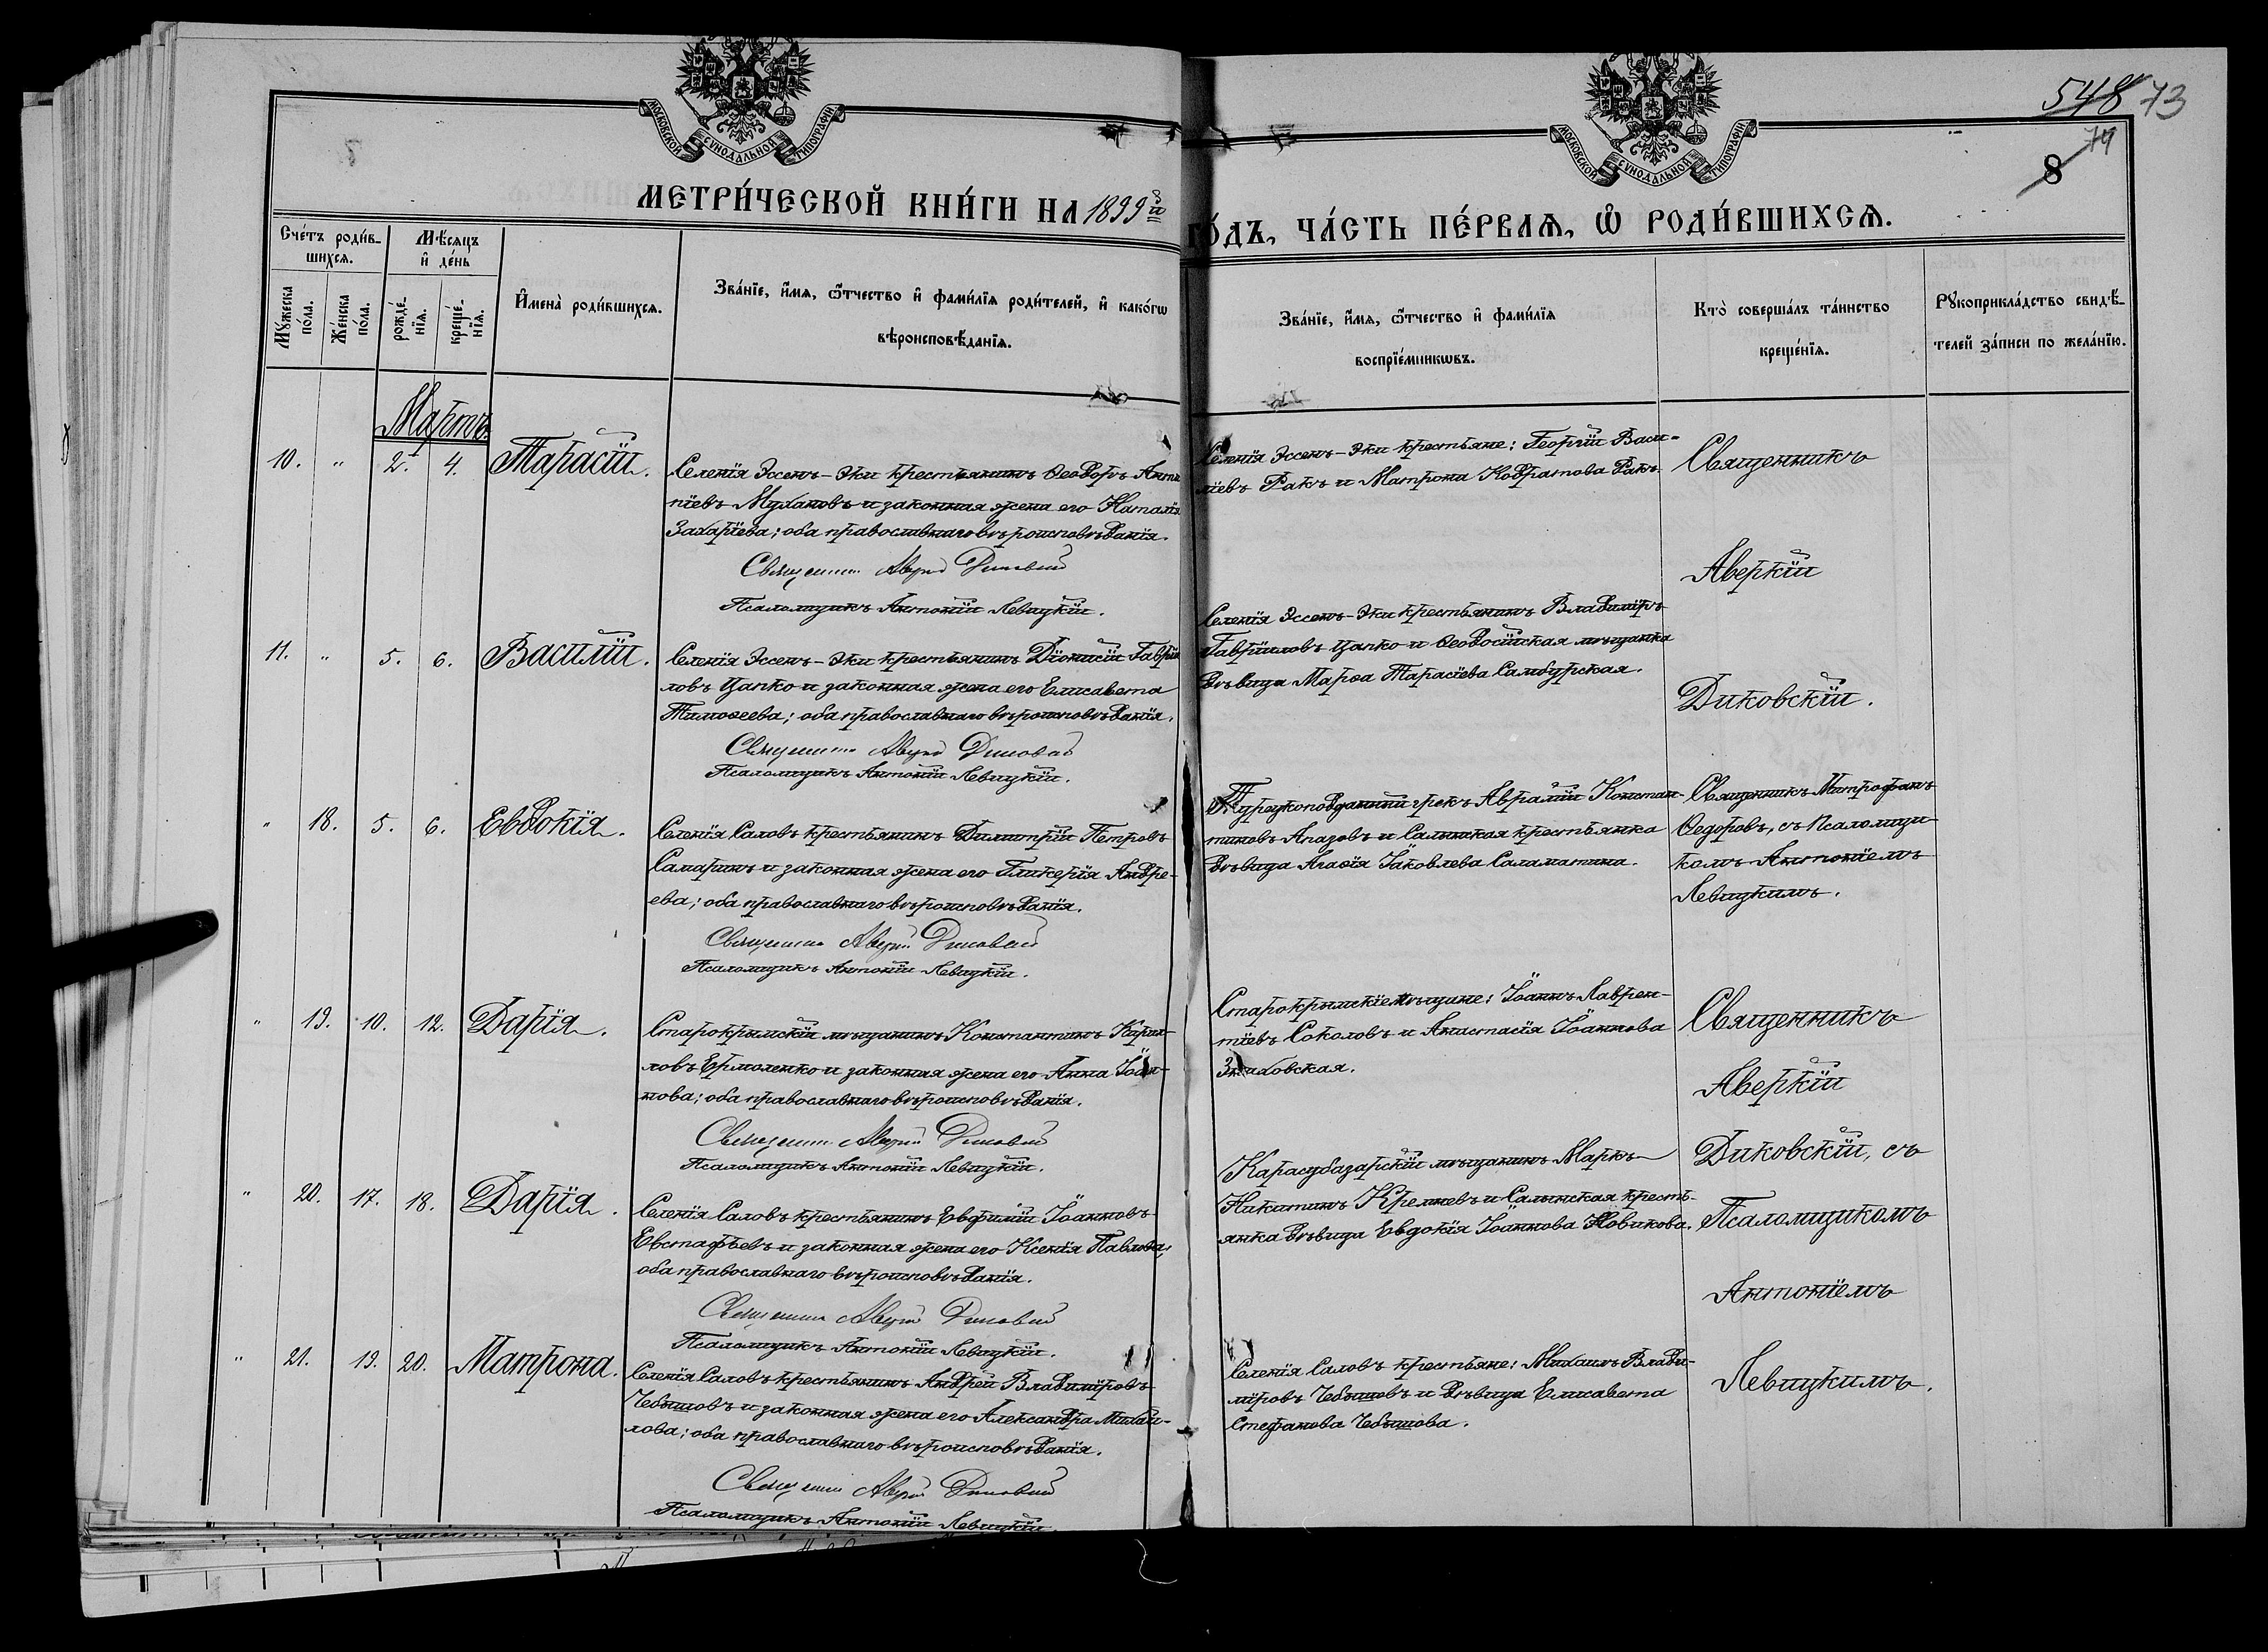 548 73
79
8
МОСКОВСКОЙ СѴНОДАЛЬНОЙ ТИПОГРАФІИ
МОСКОВСКОЙ СѴНОДАЛЬНОЙ ТИПОГРАФІИ
МЕТРИ́ЧЕСКОЙ КНИ́ГИ НА 1899й
ГО́ДЪ, ЧА́СТЬ ПЕ́РВАѦ, Ѡ РОДИ́ВШИХСѦ.
Сче́тъ роди́в-
шихсѧ.
Мѣ́сѧцъ
и҆ де́нь
Мꙋ́жеска
по́ла.
Же́нска
по́ла.
рожде́-
нїѧ.
креще́-
нїѧ.
И҆мена̀ роди́вшихсѧ.
Зва́нїе, и҆́мѧ, ѻ҆́тчество и҆ фами́лїѧ роди́телей, и҆ како́гѡ
вѣроисповѣ́данїѧ.
Зва́нїе, и҆́мѧ, ѻ҆́тчество и҆ фами́лїѧ
воспрїе́мникѡвъ.
Кто̀ соверша́лъ та́инство
креще́нїѧ.
Рꙋкоприкла́дство свидѣ́-
телей за́писи по жела́нїю.
Мартъ
10. " 2. 4. Тарасій.
Селенія Эссенъ-Эки крестьянинъ Ѳеодоръ Анти
піевъ Мухановъ и законная жена его Наталія
Захаріева; оба православнаго вѣроисповѣданія.
Священникъ Аверкій Диковскій
Псаломщикъ Антоній Левицкій.
Селенія Эссенъ-Эки крестьяне: Георгій Васи-
ліевъ Ракъ и Матрона Кодратова Ракъ.
Священникъ
Аверкій
Диковскій.
11. " 5. 6. Василій.
Селенія Эссенъ-Эки крестьянинъ Діонисій Гаврі
ловъ Цапко и законная жена его Елисавета
Тимоѳеева; оба православнаго вѣроисповѣданія.
Священникъ Аверкій Диковскій
Псаломщикъ Антоній Левицкій.
Селенія Эссенъ-Эки крестьянинъ Владиміръ
Гавріиловъ Цапко и Ѳеодосійская мѣщанка
дѣвица Марѳа Тарасіева Самбурская.
" 18. 5. 6. Евдокія.
Селенія Саловъ крестьянинъ Димитрій Петровъ
Самаринъ и законная жена его Гликерія Андре-
ева; оба православнаго вѣроисповѣданія.
Священникъ Аверкій Диковскій
Псаломщикъ Антоній Левицкій.
Турецкоподданный грекъ Авраамій Констан-
тиновъ Апазовъ и Салынская крестьянка
дѣвица Агаѳія Іаковлева Саламатина.
Священникъ Митрофанъ
Ѳедоровъ, съ Псаломщи-
комъ Антоніемъ
Левицкимъ.
" 19. 10. 12. Дарія.
Старокрымскій мѣщанинъ Константинъ Кирил-
ловъ Ермоленко и законная жена его Анна Іоан-
нова; оба православнаго вѣроисповѣданія.
Священникъ Аверкій Диковскій
Псаломщикъ Антоній Левицкій.
Старокрымскіе мѣщане: Іоаннъ Лаврен-
тіевъ Соколовъ и Анастасія Іоаннова
Священникъ
Аверкій
Диковскій, съ
Псаломщикомъ
Антоніемъ
Левицкимъ.
" 20. 17. 18. Дарія.
Селенія Саловъ крестьянинъ Евфимій Іоанновъ
Евстафьевъ и законная жена его Ксенія Павлова;
оба православнаго вѣроисповѣданія.
Священникъ Аверкій Диковскій
Псаломщикъ Антоній Левицкій.
Карасубазарскій мѣщанинъ Маркъ
Никитинъ Кремневъ и Салынская кресть-
янка дѣвица Евдокія Іоаннова Новикова.
" 21. 19. 20. Матрона.
Селенія Саловъ крестьянинъ Андрей Владиміровъ
Чебышовъ и законная жена его Александра Михаи-
лова; оба православнаго вѣроисповѣданія.
Священникъ Аверкій Диковскій
Псаломщикъ Антоній Левицкій.
Селенія Саловъ крестьяне: Михаилъ Влади-
міровъ Чебышовъ и дѣвица Елисавета
Стефанова Чебышова.